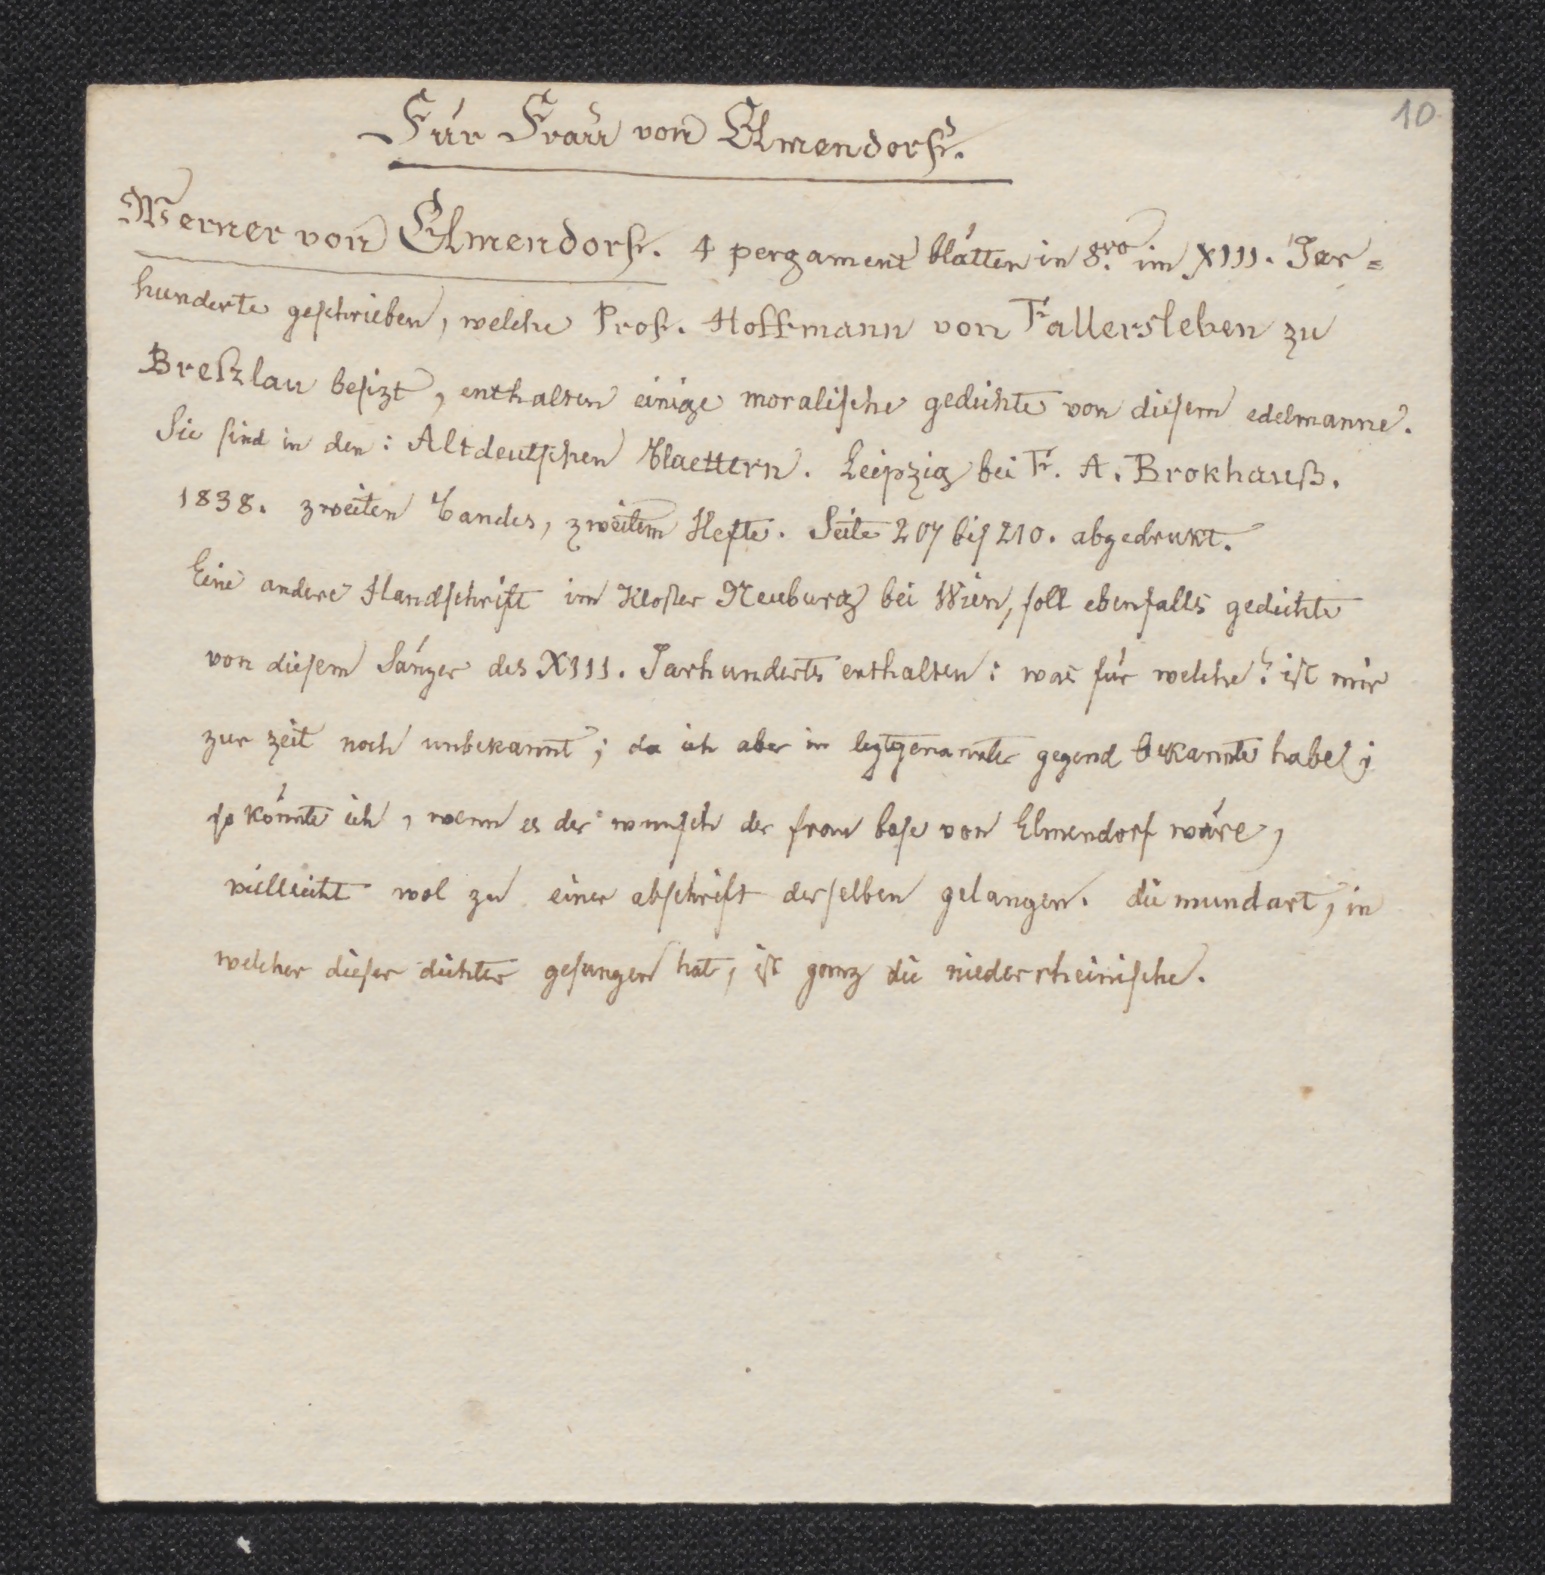 10
Für Frau von Elmendorf.
Werner von Elmendorf. 4 pergament blätter in 8.vo im XIII. Jar=
hunderte geschrieben, welche Prof. Hoffmann von Fallersleben zu
Breßlau besizt, enthalten einige moralische gedichte von diesem edelmanne.
Sie sind in den: Altdeutschen Blaettern. Leipzig bei Fr. A. Brokhauß.
1838. zweiten Bandes, zweitem Hefte. Seite 207 bis 210. abgedrukt.
Eine andere Handschrift im Kloster Neuburg bei Wien, soll ebenfalls gedichte
von diesem Sänger des XIII. Jarhunderts enthalten: was für welche? ist mir
zur zeit noch unbekannt; da ich aber in leztgenannter gegend bekannte habe;
so könnte ich, wenn es der wunsch der frau base von Elmendorf wäre,
villeicht wol zu einer abschrift derselben gelangen. die mundart, in
welcher dieser dichter gesungen hat, ist ganz die niederrheinische.